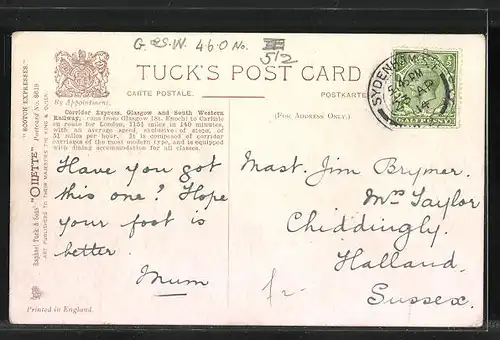 G. & S.W. 4.6.0 No.
512
TUCK'S POST CARD
By Appointment.
CARTE POSTALE.
POSTKARTE
(FOR ADDRESS ONLY.)
Corridor Express, Glasgow and South Western
Railway, runs from Glasgow (St. Enoch) to Carlisle
en route for London, 115½ miles in 140 minutes,
with an average speed, exclusive of stops, of
51 miles per hour. It is composed of corridor
carriages of the most modern type, and is equipped
with dining accommodation for all classes.
Have you got
this one? Hope
your foot is
better.
Mum
Mast. Jim Brymer.
Mrs Taylor
Chiddingly.
Halland.
Sussex.
SYDENHAM
PM
AP
14
HALFPENNY
"NOTED EXPRESSES."
Raphael Tuck & Sons' "OILETTE" Postcard No. 8619
ART PUBLISHERS TO THEIR MAJESTIES THE KING & QUEEN
Printed in England.